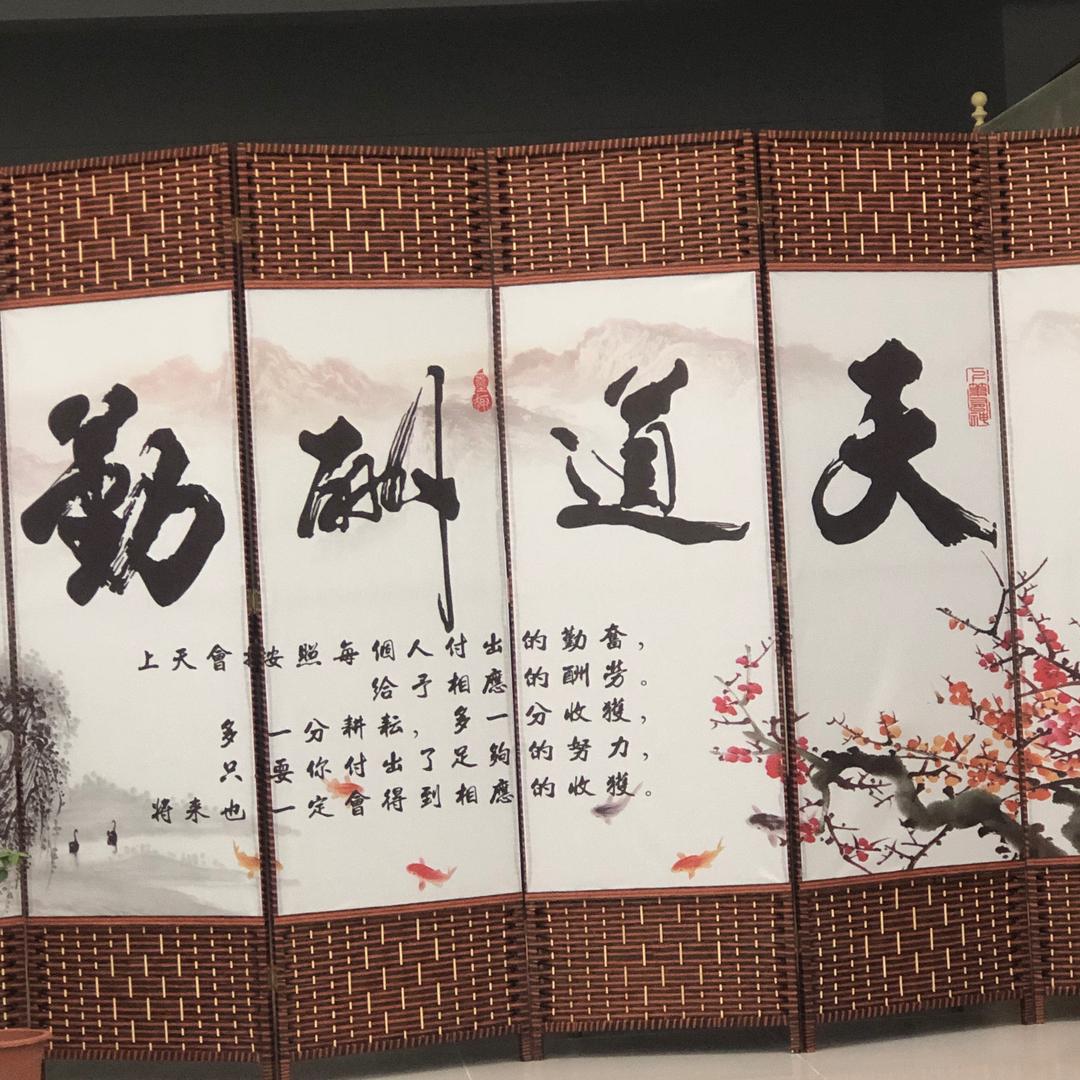 天道酬勤
上天會按照每個人付出的勤奮，
給予相應的酬勞。
多一分耕耘，多一分收獲，
只要你付出了足夠的努力，
将来也一定會得到相應的收獲。